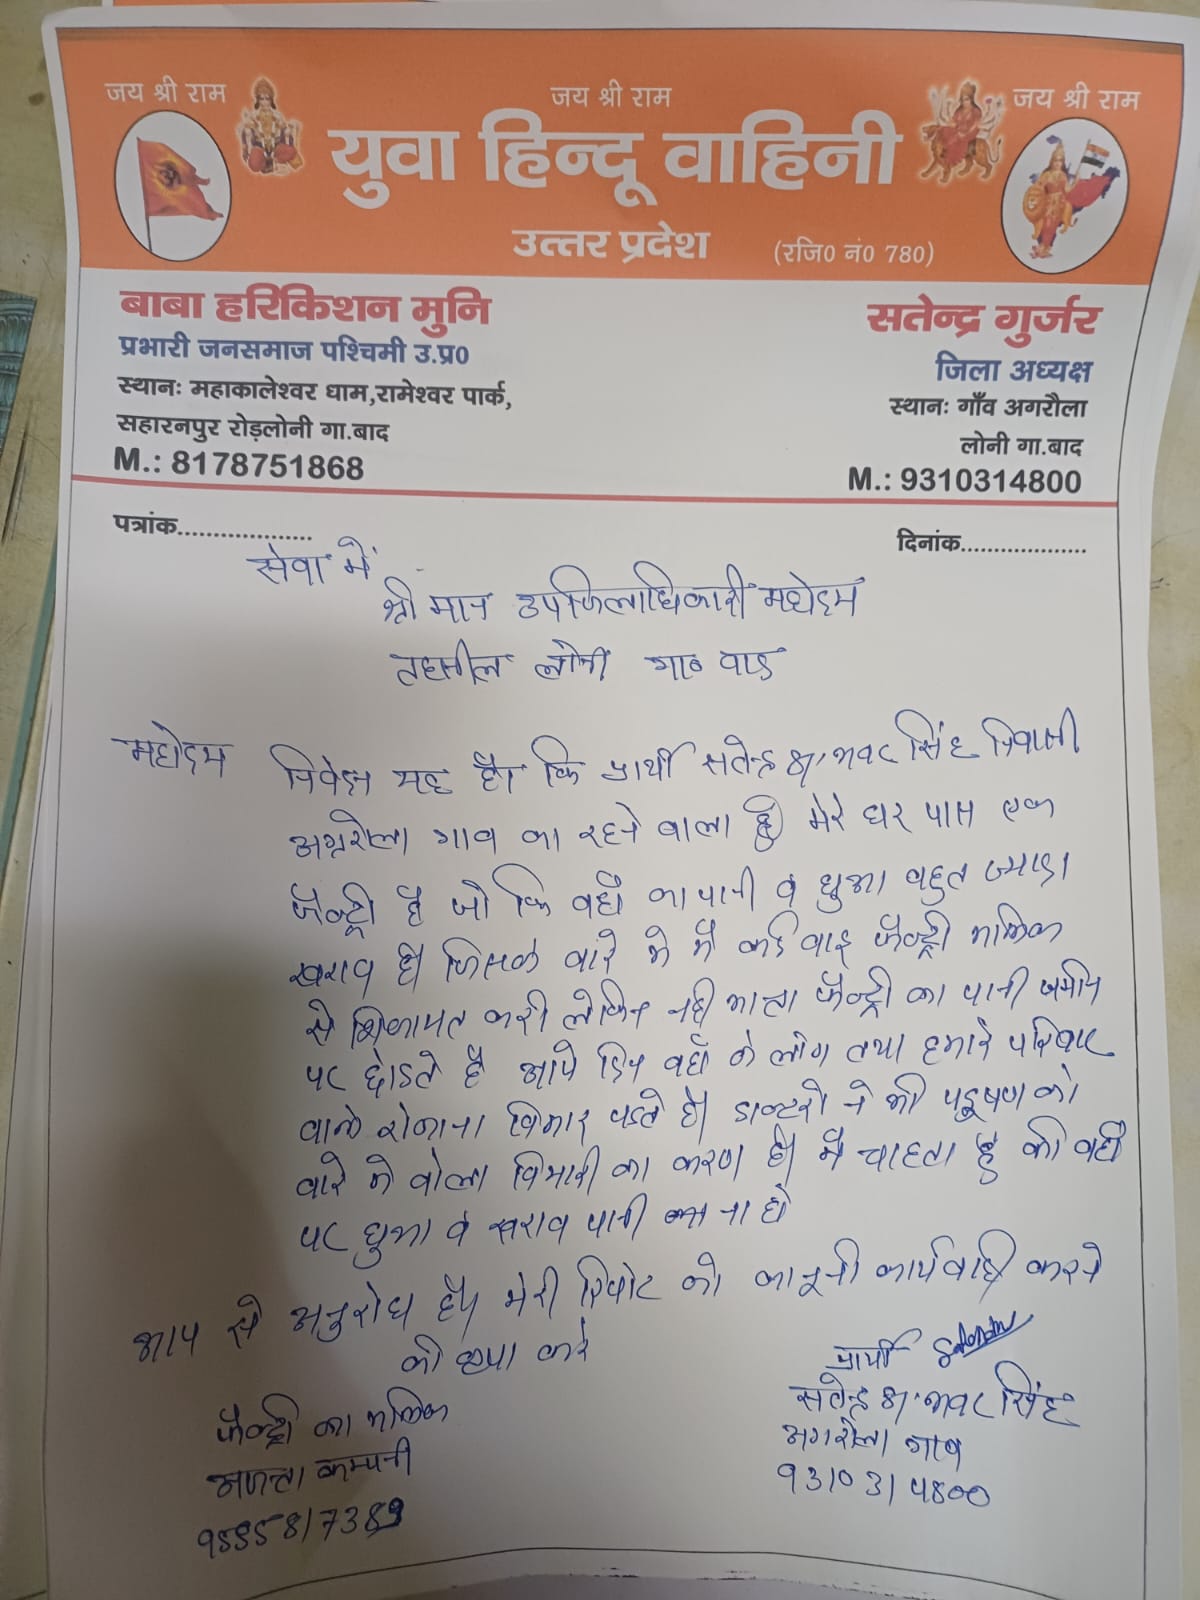 जय श्री राम जय श्री राम जय श्री राम
युवा हिन्दू वाहिनी
उत्तर प्रदेश (रजि0 नं0 780)
बाबा हरिकिशन मुनि
प्रभारी जनसमाज पश्चिमी उ.प्र0
स्थानः महाकालेश्वर धाम,रामेश्वर पार्क,
सहारनपुर रोड़लोनी गा.बाद
M.: 8178751868
सतेन्द्र गुर्जर
जिला अध्यक्ष
स्थानः गाँव अगरौला
लोनी गा.बाद
M.: 9310314800
पत्रांक.................. दिनांक...................
सेवा में
श्री मान उपजिलाधिकारी महोदय
तहसील लोनी गाज वाद
महोदय निवेदन यह है। कि प्रार्थी सतेन्द्र S/० सिंह निवासी
अगरोला गाव का रहने वाला हूँ मेरे घर पास एक
फैक्ट्री है जो कि वहाँ का पानी व धुआ वहुत ज्यादा
खराव है जिसके वारे मे मै कई वार फैक्ट्री मालिक
से शिकायत करी लेकिन नही माना फैक्ट्री का पानी जमीन
पर छोडते है आये दिन वहाँ के लोग तथा हमारे परिवार
वाले रोजाना विमार पडते है। डाक्टरो ने भी को
वारे मे वोला विमारी का करण है। मै चाहता हु की वहाँ
पर धुआ व खराव पानी ना हो
आप से अनुरोध है। मेरी रिपोट को कानूनी कार्यवाही करने
की कृपा करे
प्रार्थी
सतेन्द्र S/० सिंह
अगरोला गाव
9310314800
फैक्ट्री का मालिक
कम्पनी